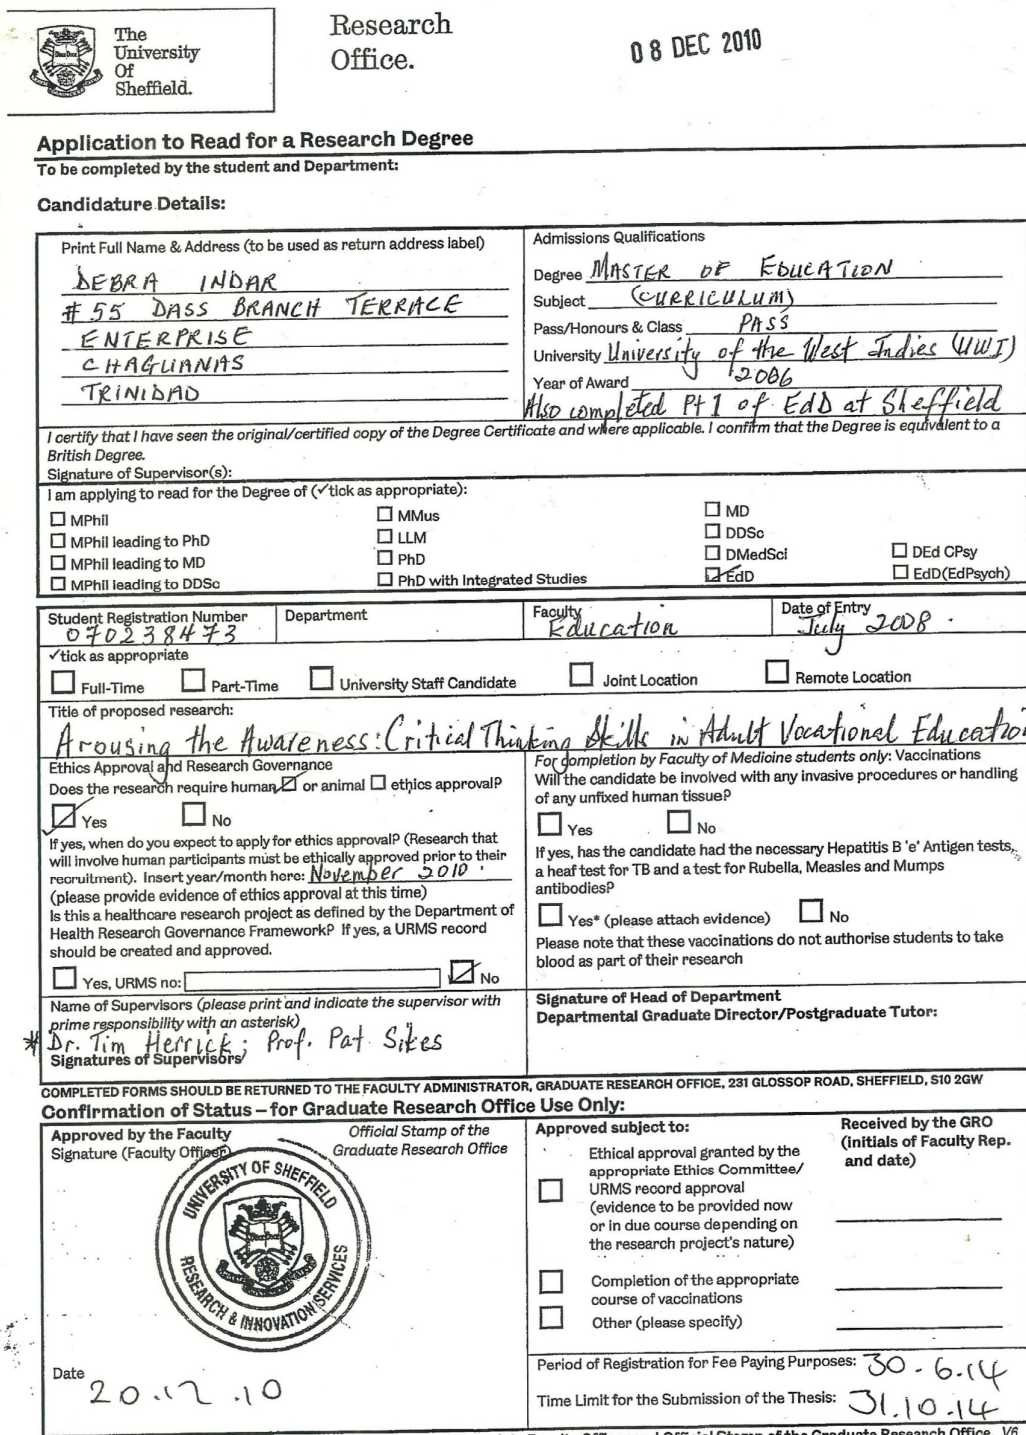 The
University
Of
Sheffield.
Research
Office.
08 DEC 2010
Application to Read for a Research Degree
To be completed by the student and Department:
Candidature Details:
Print Full Name & Address (to be used as return address label)
DEBRA INDAR
# 55 DASS BRANCH TERRACE
ENTERPRISE
CHAGUANAS
TRINIDAD
Admissions Qualifications
Degree MASTER OF EDUCATION
Subject (CURRICULUM)
Pass/Honours & Class PASS
University University of the West Indies (UWI)
Year of Award 2006
Also completed Pt 1 of EdD at Sheffield
I certify that I have seen the original/certified copy of the Degree Certificate and where applicable. I confirm that the Degree is equivalent to a
British Degree.
Signature of Supervisor(s):
I am applying to read for the Degree of (✓tick as appropriate):
☐ MPhil
☐ MPhil leading to PhD
☐ MPhil leading to MD
☐ MPhil leading to DDSc
☐ MMus
☐ LLM
☐ PhD
☐ PhD with Integrated Studies
☐ MD
☐ DDSc
☐ DMedSci
☑ EdD
☐ DEd CPsy
☐ EdD(EdPsych)
Student Registration Number
070238473
Department
Faculty
Education
Date of Entry
July 2008.
✓tick as appropriate
☐ Full-Time ☐ Part-Time ☐ University Staff Candidate ☐ Joint Location ☐ Remote Location
Title of proposed research:
Arousing the Awareness: Critical Thinking Skills in Adult Vocational Education
Ethics Approval and Research Governance
Does the research require human ☑ or animal ☐ ethics approval?
☑ Yes ☐ No
If yes, when do you expect to apply for ethics approval? (Research that
will involve human participants must be ethically approved prior to their
recruitment). Insert year/month here: November 2010.
(please provide evidence of ethics approval at this time)
Is this a healthcare research project as defined by the Department of
Health Research Governance Framework? If yes, a URMS record
should be created and approved.
☐ Yes, URMS no: ☑ No
For completion by Faculty of Medicine students only: Vaccinations
Will the candidate be involved with any invasive procedures or handling
of any unfixed human tissue?
☐ Yes ☐ No
If yes, has the candidate had the necessary Hepatitis B 'e' Antigen tests,
a heaf test for TB and a test for Rubella, Measles and Mumps
antibodies?
☐ Yes* (please attach evidence) ☐ No
Please note that these vaccinations do not authorise students to take
blood as part of their research
Name of Supervisors (please print and indicate the supervisor with
prime responsibility with an asterisk)
* Dr. Tim Herrick; Prof. Pat Sikes
Signatures of Supervisors
Signature of Head of Department
Departmental Graduate Director/Postgraduate Tutor:
COMPLETED FORMS SHOULD BE RETURNED TO THE FACULTY ADMINISTRATOR, GRADUATE RESEARCH OFFICE, 231 GLOSSOP ROAD, SHEFFIELD, S10 2GW
Confirmation of Status – for Graduate Research Office Use Only:
Approved by the Faculty
Signature (Faculty Officer)
Official Stamp of the
Graduate Research Office
UNIVERSITY OF SHEFFIELD
RESEARCH & INNOVATION SERVICES
Date
20.12.10
Approved subject to:
☐ Ethical approval granted by the
appropriate Ethics Committee/
URMS record approval
(evidence to be provided now
or in due course depending on
the research project's nature)
☐ Completion of the appropriate
course of vaccinations
☐ Other (please specify)
Received by the GRO
(initials of Faculty Rep.
and date)
Period of Registration for Fee Paying Purposes: 30.6.14
Time Limit for the Submission of the Thesis: 31.10.14
Official Stamp of the Graduate Research Office. V6